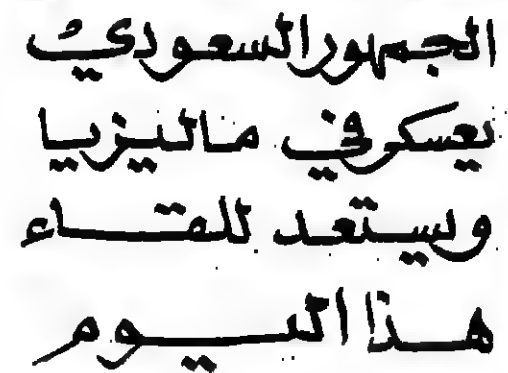 الجمهور السعودي
يعسكر في ماليزيا
ويستعد للقاء
هذا اليوم